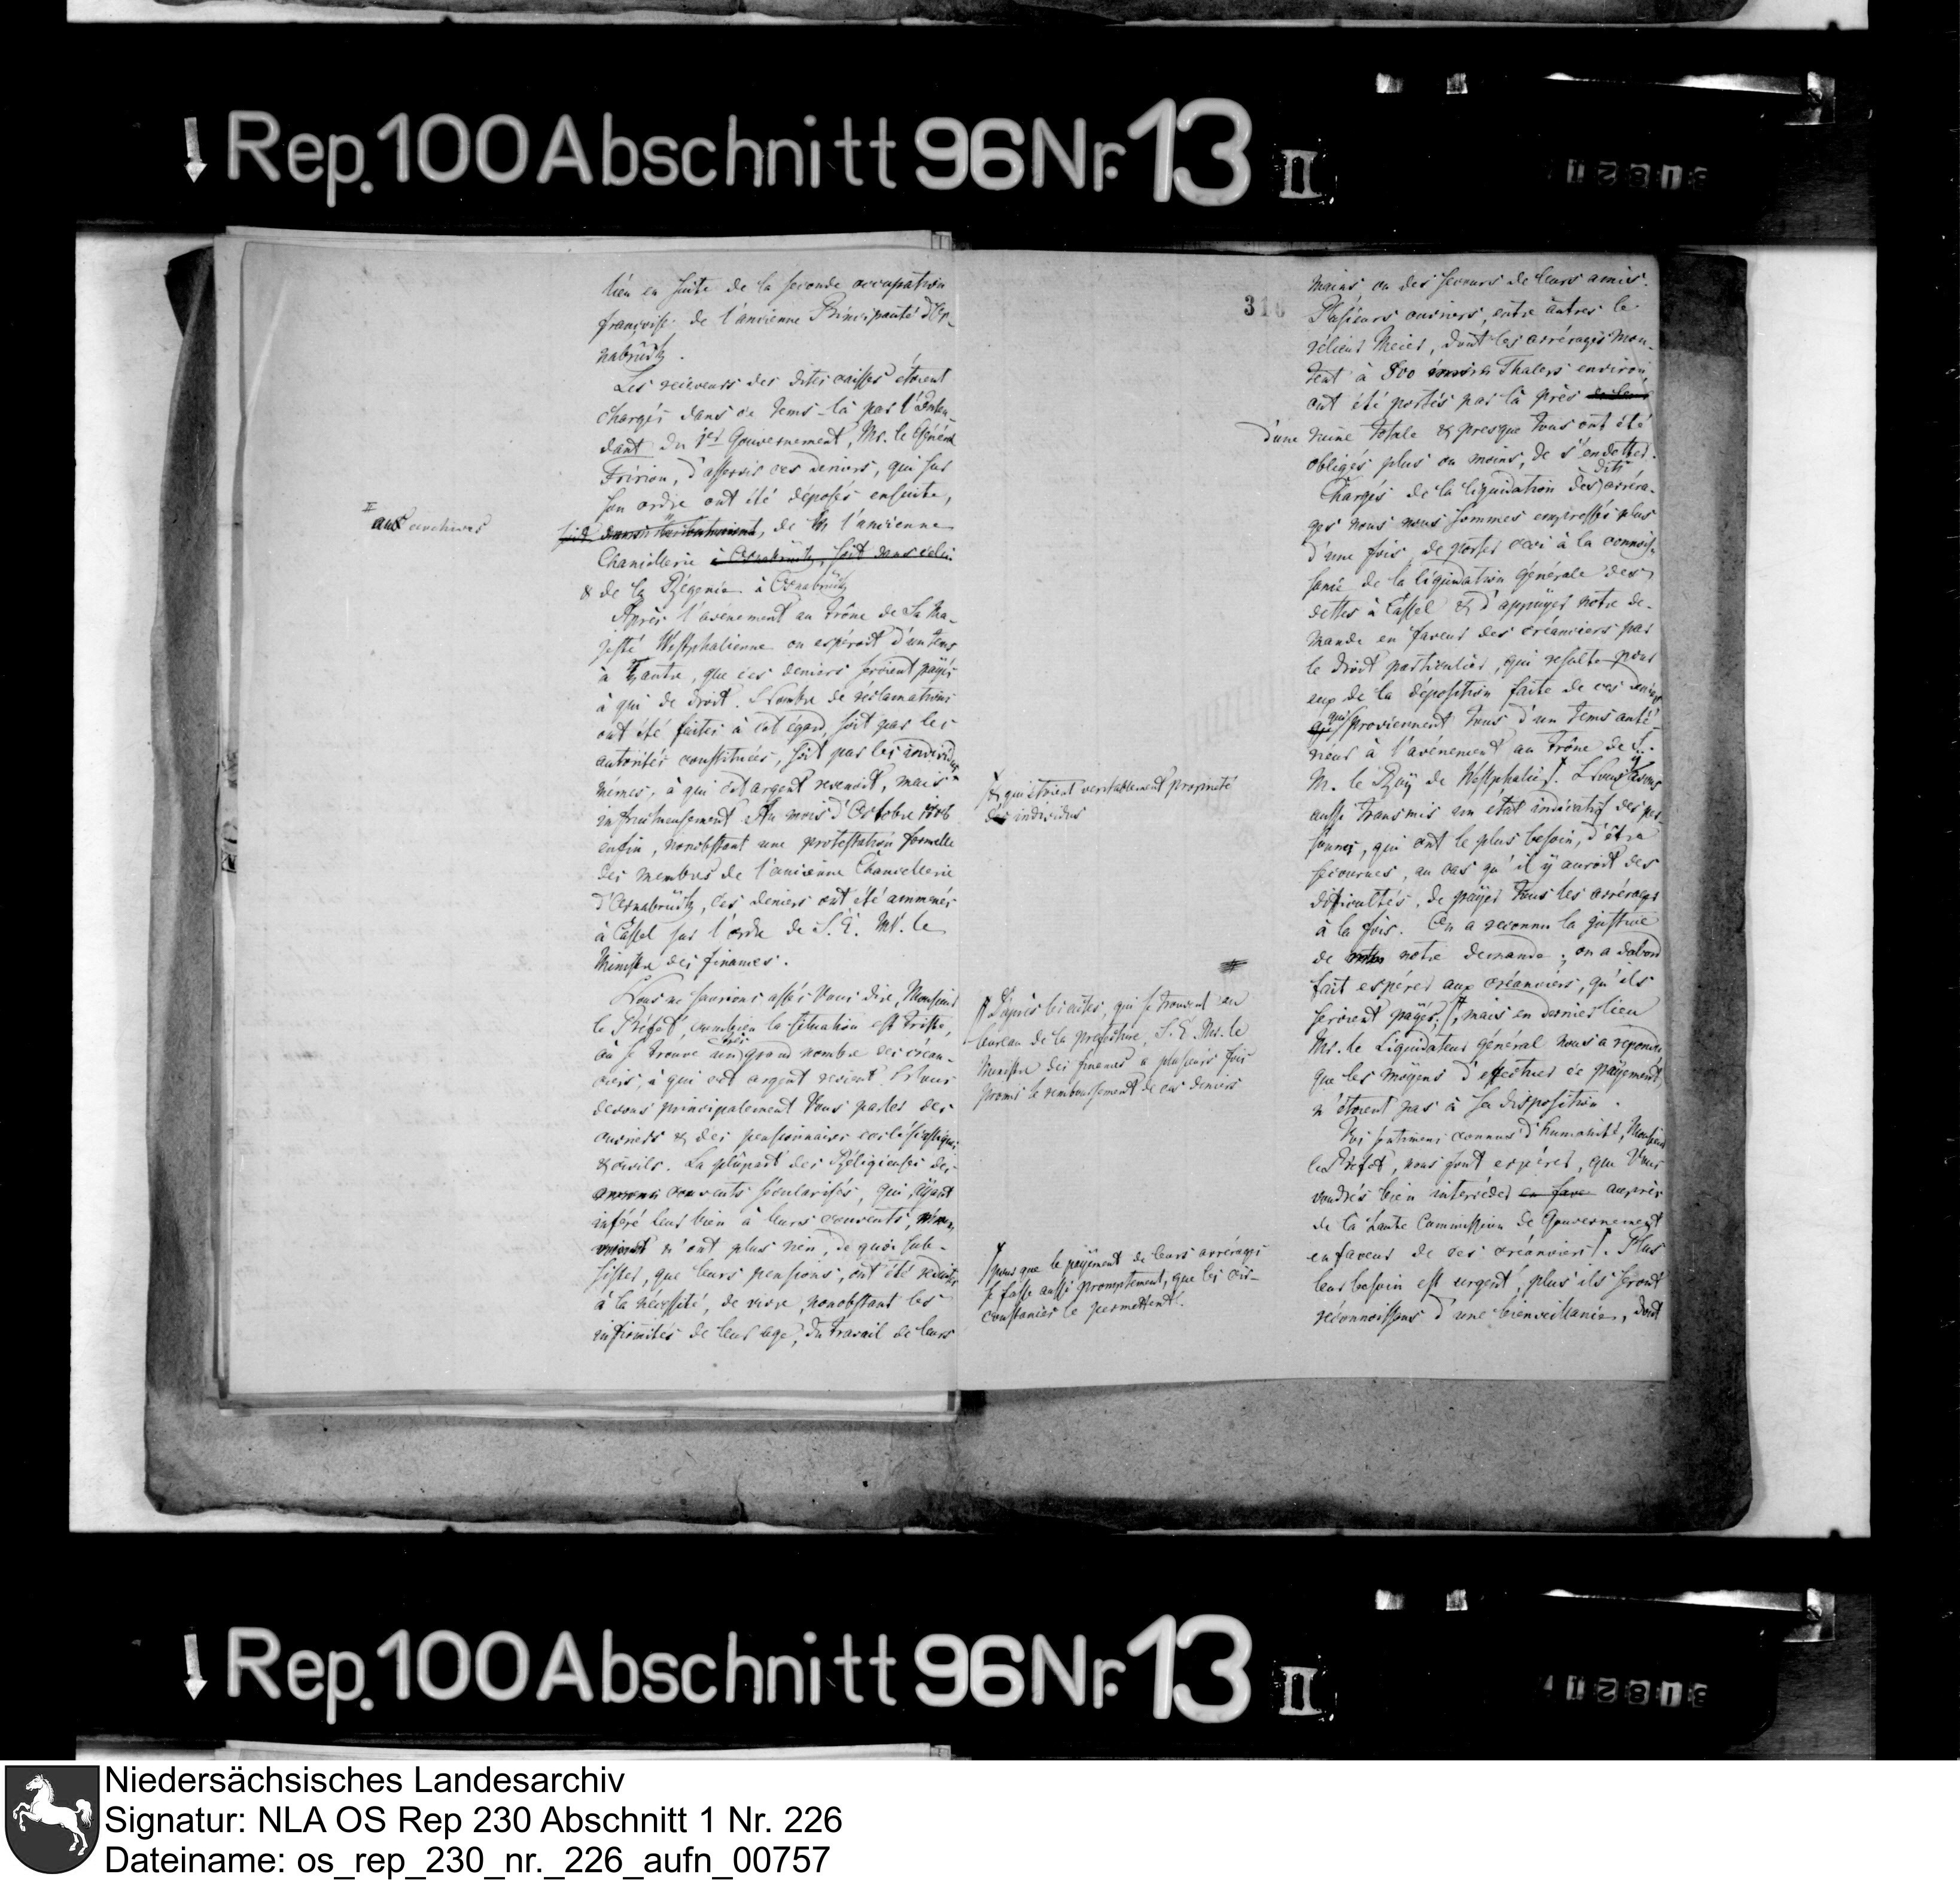 Rep. 100 Abschnitt 96 Nr. 13 II
lieu en suite de la seconde occupation
françoise de l'ancienne Principauté d'Os-
nabrück.
Les receveurs des dites caisses étoient
chargés dans ce tems-là par l'Inten-
dant du 1er Gouvernement, Mr. le Général
Fririon, d'asservir ces deniers, qui sur
son ordre ont été déposés ensuite,
aux archives
soit dans, de l'ancienne
Chancellerie à Osnabrück, soit dans celui
& de la Régence à Osnabrück
Après l'avénement au trône de Sa Ma-
jesté Westphalienne on espéroit d'un tems
à l'autre, que ces deniers seroient payés
à qui de droit. Nombre de réclamations
ont été faites à cet égard, soit par les
autorités constituées, soit par les individus
mêmes, à qui cet argent revenoit, mais
infructueusement. Au mois d'Octobre 1808
enfin, nonobstant une protestation formelle
des membres de l'ancienne Chancellerie
d'Osnabrück, ces deniers ont été ammenés
à Cassel sur l'ordre de S. E. Mr. le
Ministre des finances.
Nous ne saurions assés Vous dire, Monsieur
le Préfet, combien la situation est triste,
où se trouve un très grand nombre des créan-
ciers, à qui cet argent revient. Nous
devons principalement Vous parler des
ouvriers & des pensionnaires ecclésiastiques
& civils. La plûpart des Réligieuses des
couvents sécularisés, qui ayant
inféré leur bien à leurs couvents,
n'ont plus rien, de quoi sub-
sister, que leurs pensions, ont été réduites
à la nécessité, de vivre, nonobstant les
infirmités de leur age, du travail de leurs
& qui étoient veritablement propriété
des individus
D'après les actes, qui se trouvent au
bureau de la préfecture, S. E. Mr. le
Ministre des finances a plusieurs fois
promis le remboursement de ces deniers
pour que le payement de leurs arrérages
se fasse aussi promptement, que les cir-
constances le permettent.
310
mains ou des secours de leurs amis.
Plusieurs ouvriers, entre autres le
rélieur Meier, dont les arrérages mon-
tent à 800 Thalers environ,
ont été portés par là près
d'une ruine totale & presque tous ont été
obligés plus ou moins, de s'endetter.
Chargés de la liquidation des dits arréra-
ges nous nous sommes empressés plus
d'une fois, de porter ceci à la connois-
sance de la liquidation générale des
dettes à Cassel & d'appuyer notre de-
mande en faveur des créanciers par
le droit particulier, qui resulte pour
eux de la déposition faite de ces deniers
qui proviennent tous d'un tems anté-
rieur à l'avénement au trône de S.
M. le Roy de Westphalie. Nous y avons
aussi transmis un état indicatif des per-
sonnes, qui ont le plus besoin, d'être
secourues, au cas qu'il y auroit des
difficultés, de payer tous les arrérages
à la fois. On a reconnu la justice
de notre demande; on a dabord
fait espérer aux créanciers, qu'ils
seroient payés, mais en dernier lieu
Mr. le Liquidateur général nous a repondu
que les moyens d'effectuer ce payement
n'étoient pas à sa disposition.
Vos sentimens connus d'humanité, Monsieur
le Préfet, nous font espérer, que Vous
voudrés bien intercéder en fave auprès
de la haute Commission de Gouvernement
en faveur de ces créanciers. Plus
leur besoin est urgent, plus ils seront
réconnoissans d'une bienveillance, dont
Rep. 100 Abschnitt 96 Nr. 13 II
Niedersächsisches Landesarchiv
Signatur: NLA OS Rep 230 Abschnitt 1 Nr. 226
Dateiname: os_rep_230_nr._226_aufn_00757